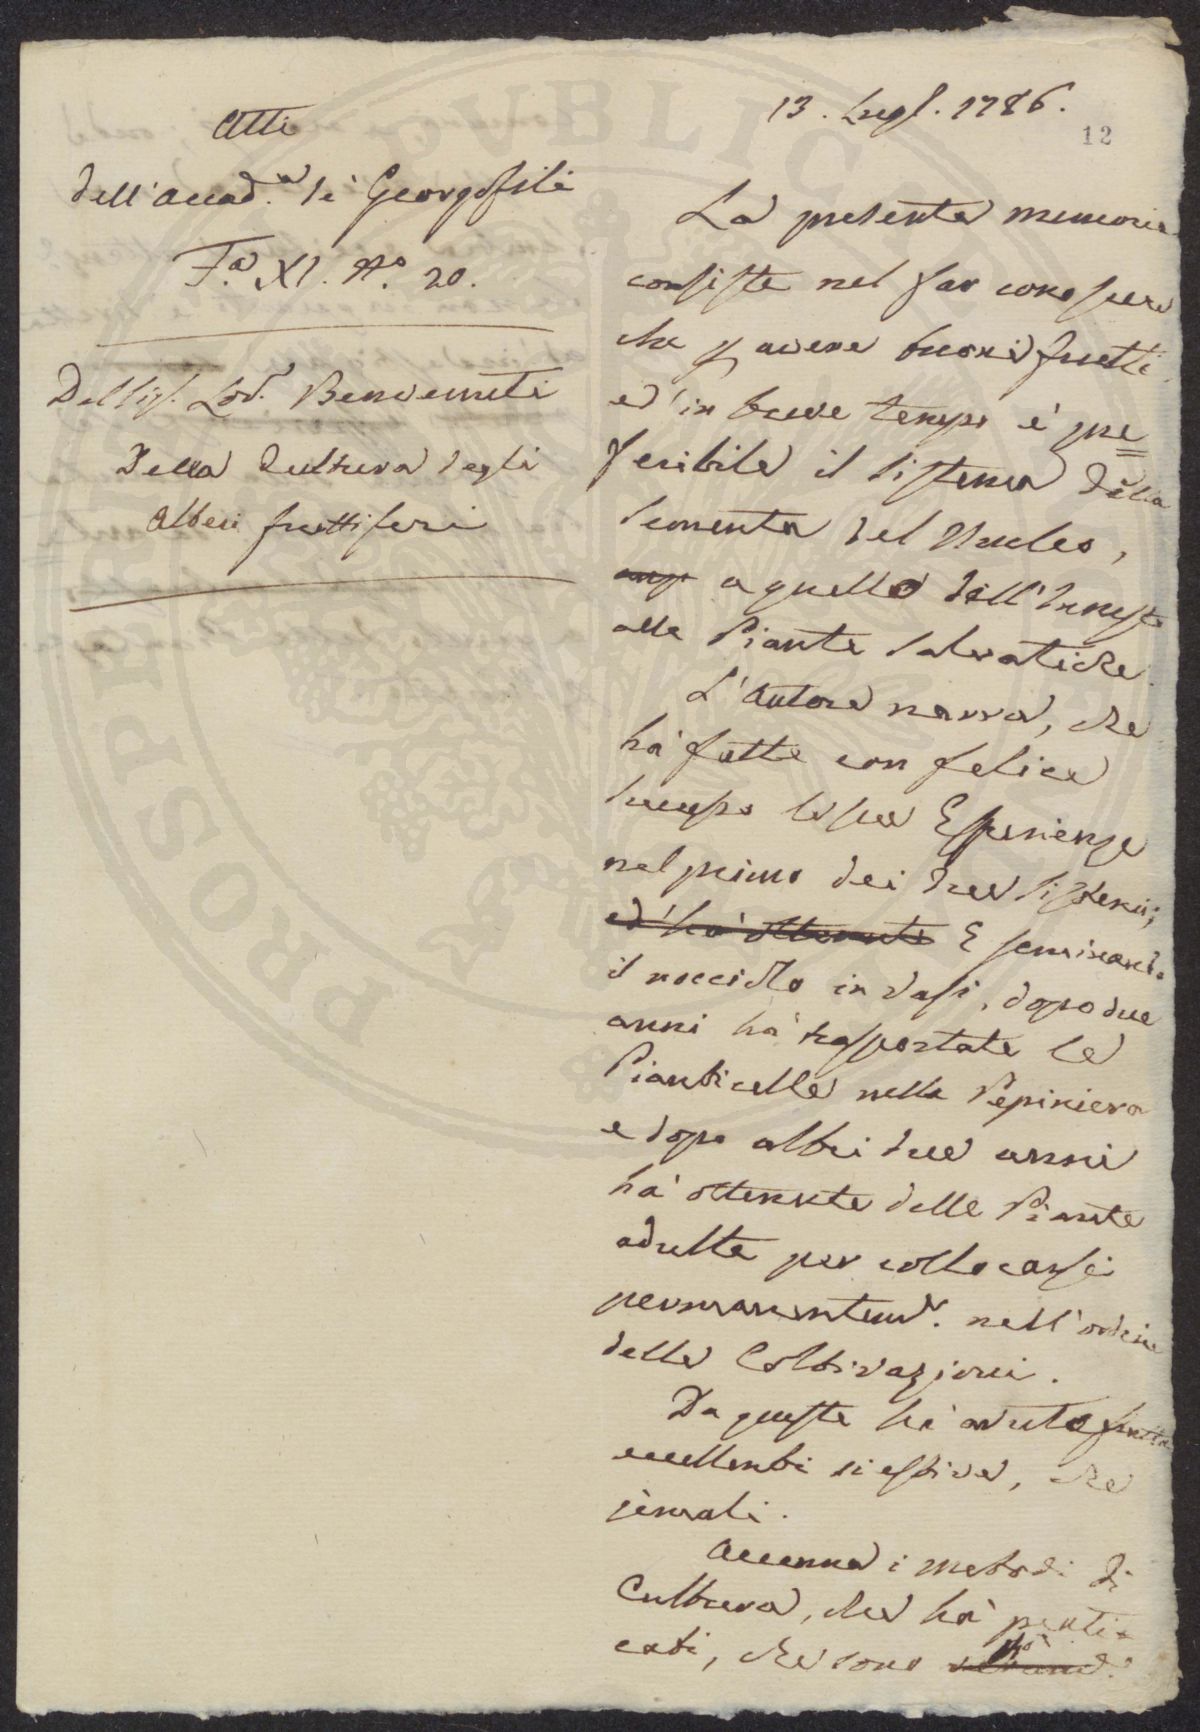 Atti
dell'Accad.a de' Georgofili
F.a XI. N.o 20.
Del Sig. Lod. Benvenuti
Della Cultura degli
Alberi fruttiferi
13. Lugl. 1786.
12
La presente memoria
consiste nel far conoscere
che p avere buoni frutti,
ed in breve tempo è pre=
feribile il sistema della
sementa del Nucleo,
a quello dell'Innesto
alle Piante salvatiche.
L'Autore narra, che
hà fatte con felice
sucesso le sue Esperienze
nel primo dei due sistemi;
ed' hà ottenute E seminando
il nocciolo in vasi, dopo due
anni hà trasportate le
Pianticelle nella Pepiniera
e dopo altri due anni
hà ottenute delle Piante
adulte per collocarsi
permanentem.e nell'ordine
delle Coltivazioni.
Da queste hà avuto frutta
eccellenti si estive, che
jemali.
Accenna i metodi di
Cultura, che hà prati=
cati, che sono